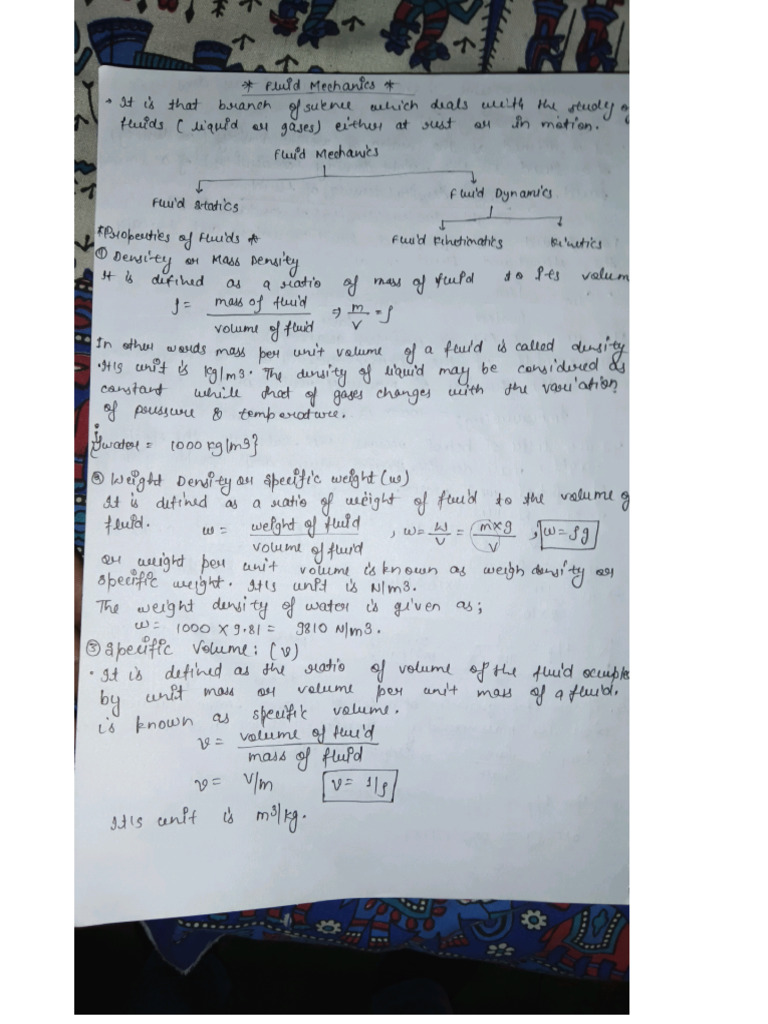 * Fluid Mechanics *
• It is that branch of science which deals with the study of
fluids (liquid or gases) either at rest or in motion.
Fluid Mechanics
Fluid Statics
Fluid Dynamics
Fluid Kinetimatics
Kinetics
*Properties of Fluids *
① Density or Mass Density
It is defined as a ratio of mass of fluid to its volum
ρ = mass of fluid / volume of fluid ⇒ m/V = ρ
In other words mass per unit volume of a fluid is called density
• It's unit is kg/m3. The density of liquid may be considered as
constant while that of gases changes with the variation
of pressure & temperature.
{ρwater = 1000 kg/m3}
② Weight Density or Specific weight (w)
It is defined as a ratio of weight of fluid to the volume of
fluid. w = weight of fluid / volume of fluid , w = W/V = m×g/V , w = ρg
or weight per unit volume is known as weigh density or
specific weight. It's unit is N/m3.
The weight density of water is given as;
w = 1000 × 9.81 = 9810 N/m3.
③ Specific Volume: (v)
• It is defined as the ratio of volume of the fluid ocupie
by unit mass or volume per unit mass of a fluid.
is known as specific volume.
v = volume of fluid / mass of fluid
v = V/m v = 1/ρ
It's unit is m3/kg.